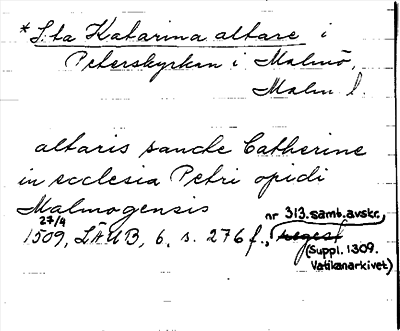 * S:ta Katarina altare i
Peterskyrkan i Malmö,
Malm l.
altaris sancte Catherine
in ecclesia Petri opidi
Malmogensis
27/4 nr 313. saml. avskr.,
1509, LAUB, 6, s. 276 f., regest
(Suppl. 1309.
Vatikanarkivet)